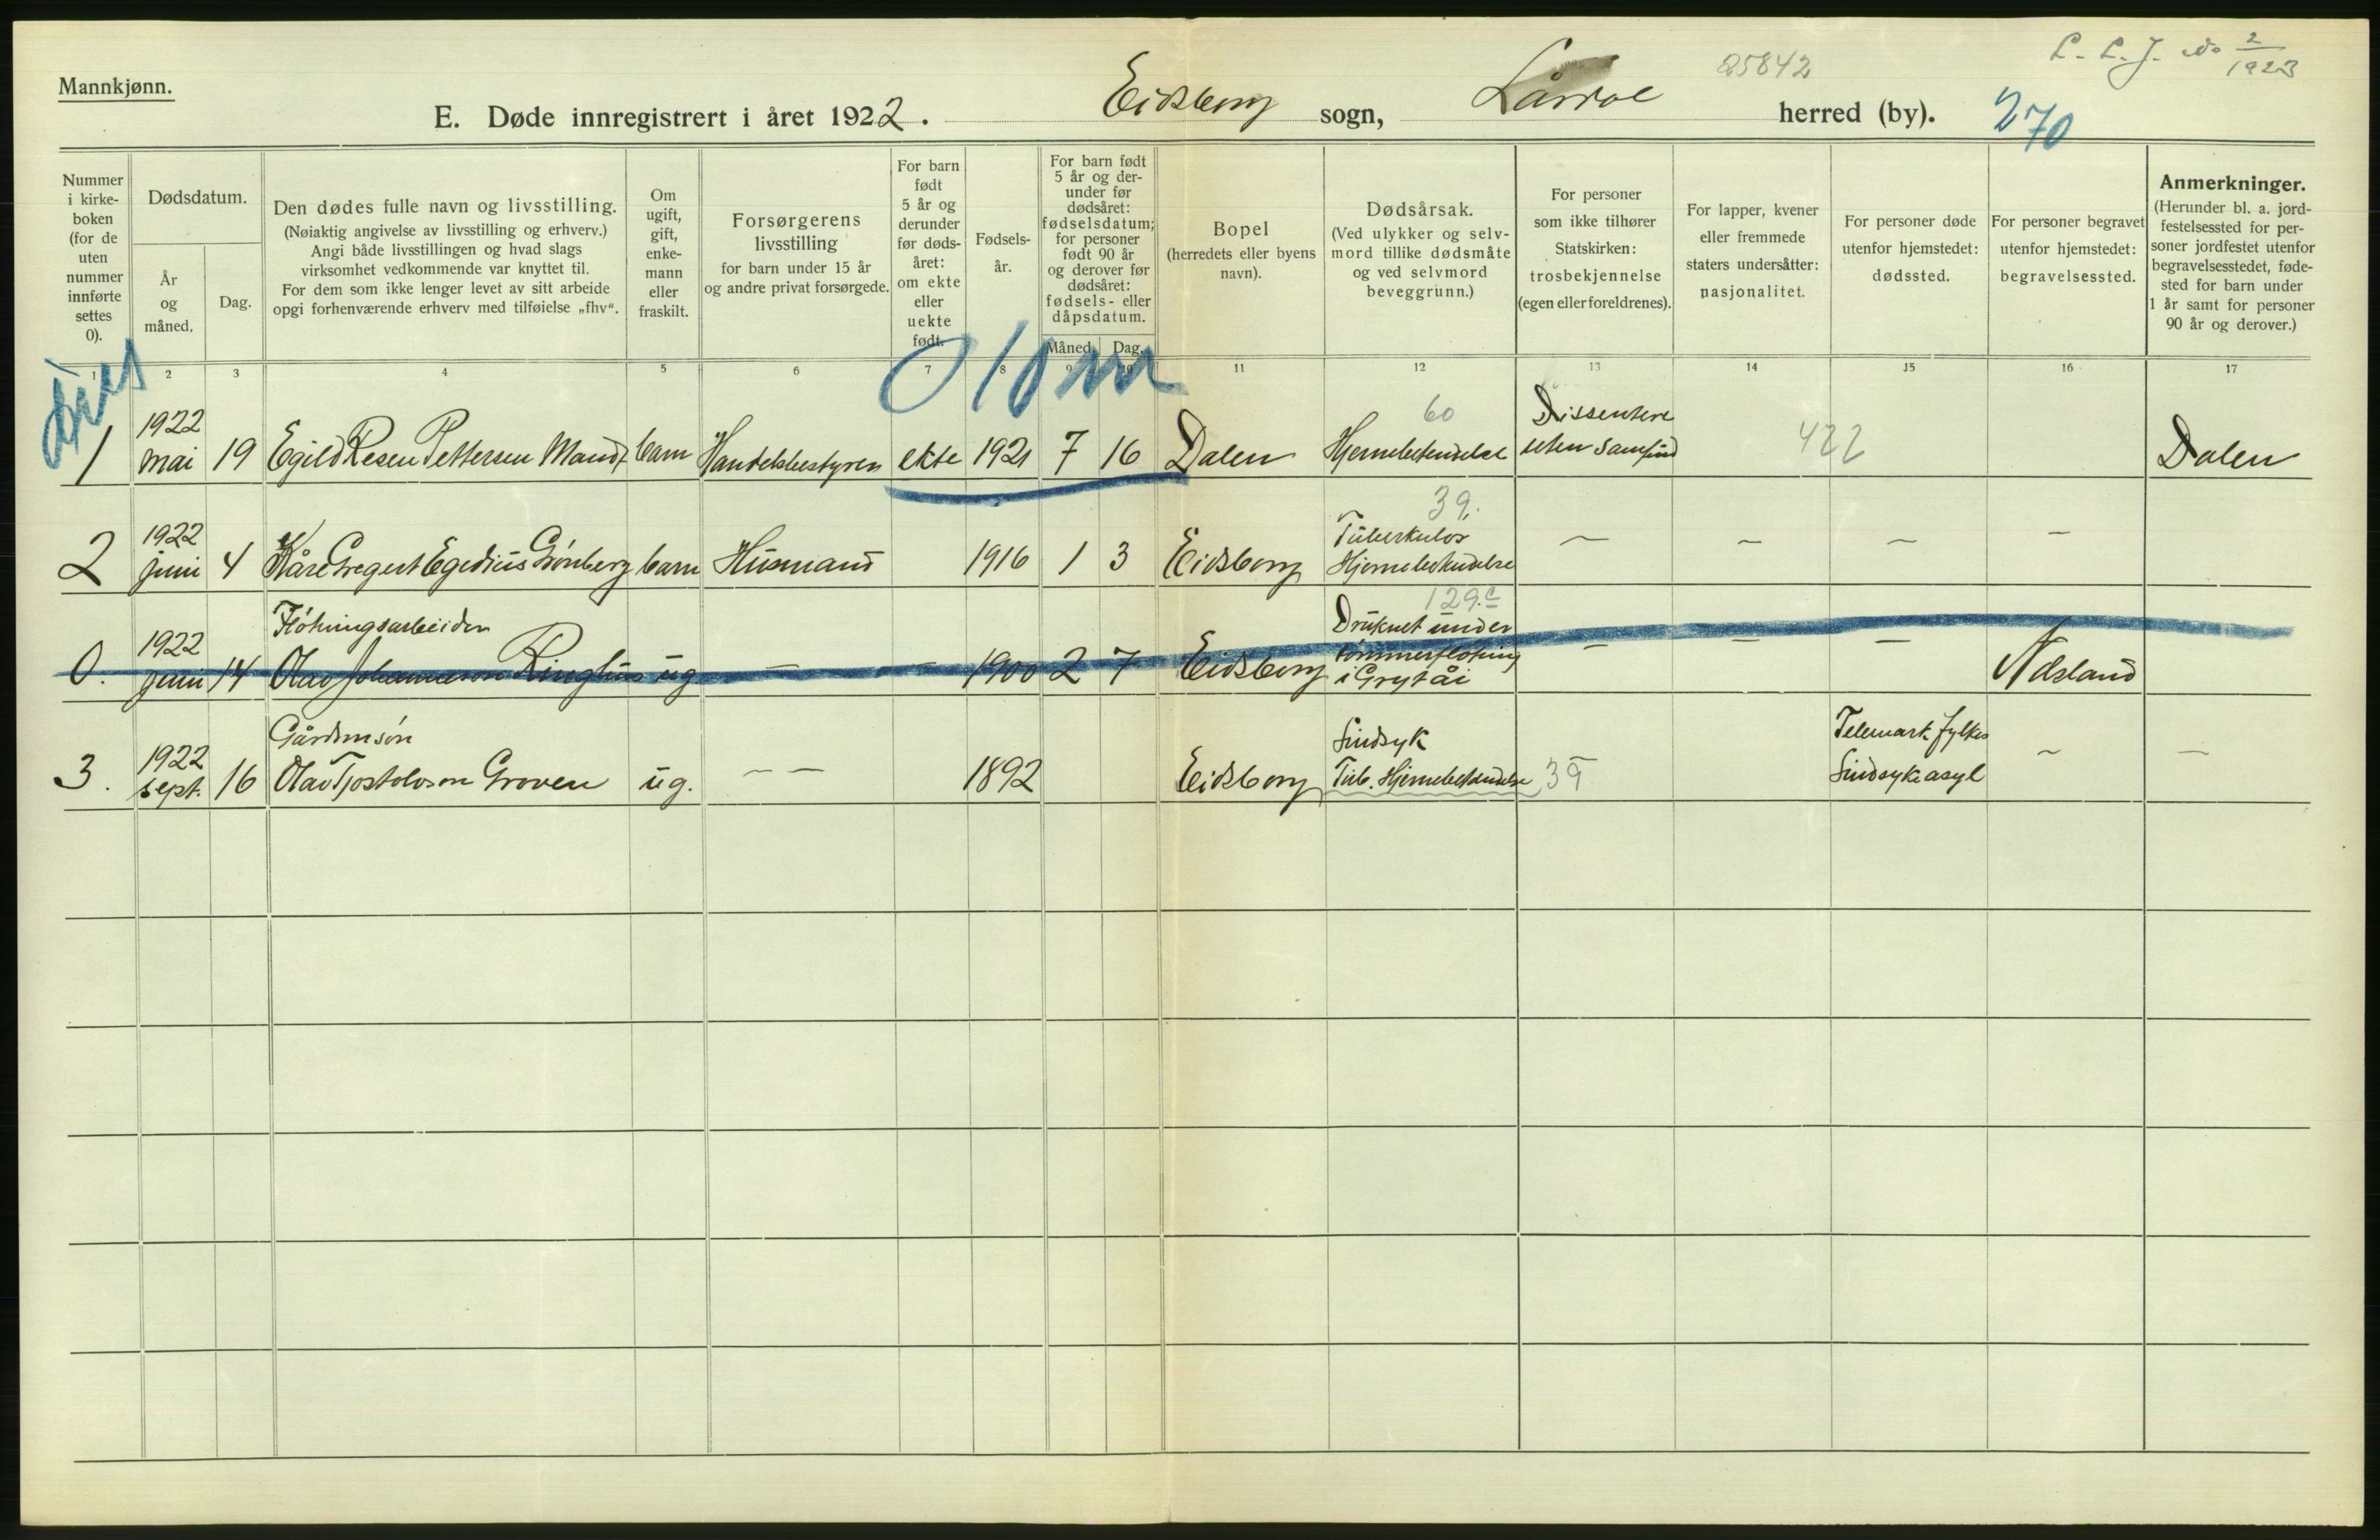 Mannkjønn.
E. Døde innregistrert i året 1922. Eidsborg sogn, Lårdal herred (by).
25842
270
L. L. J. 2/1923
Nummer i kirke-boken (for de uten nummer innførte settes 0).
Dødsdatum.
År og måned.
Dag.
Den dødes fulle navn og livsstilling.
(Nøiaktig angivelse av livsstilling og erhverv.)
Angi både livsstillingen og hvad slags
virksomhet vedkommende var knyttet til.
For dem som ikke lenger levet av sitt arbeide
opgi forhenværende erhverv med tilføielse „fhv“.
Om ugift, gift, enke-mann eller fraskilt.
Forsørgerens livsstilling
for barn under 15 år
og andre privat forsørgede.
For barn født 5 år og derunder før døds-året: om ekte eller uekte født.
Fødsels-år.
For barn født 5 år og der-under før dødsåret: fødselsdatum; for personer født 90 år og derover før dødsåret: fødsels- eller dåpsdatum.
Måned.
Dag.
Bopel
(herredets eller byens navn).
Dødsårsak.
(Ved ulykker og selv-mord tillike dødsmåte og ved selvmord beveggrunn.)
For personer som ikke tilhører Statskirken: trosbekjennelse (egen eller foreldrenes).
For lapper, kvener eller fremmede staters undersåtter: nasjonalitet.
For personer døde utenfor hjemstedet: dødssted.
For personer begravet utenfor hjemstedet: begravelsessted.
Anmerkninger.
(Herunder bl. a. jord-festelsessted for per-soner jordfestet utenfor begravelsesstedet, føde-sted for barn under 1 år samt for personer 90 år og derover.)
1 2 3 4 5 6 7 8 9 10 11 12 13 14 15 16 17
1 1922 mai 19 Egild Resen Pettersen barn Handelsbestyrer ekte 1921 7 16 Dalen 60 Hjernebetendelse Dissentere uten samfund 422 Dalen
2 1922 juni 4 Kåre Gregert Egedius Grönberg barn Husmand 1916 1 3 Eidsborg 39. Tuberkulos Hjernebetendelse — — — —
0. 1922 juni 14 Flötningsarbeider Olav Johannesson Ringhus ug — — 1900 2 7 Eidsborg 129.c Druknet under tömmerflötning i Grytåi — — — Adsland
3. 1922 sept. 16 Gårdmsön Olav Tjostolvson Groven ug. — — 1892 Eidsborg Sindsyk Tub. Hjernebetendelse 39 Telemark fylkes Sindsykeasyl — —